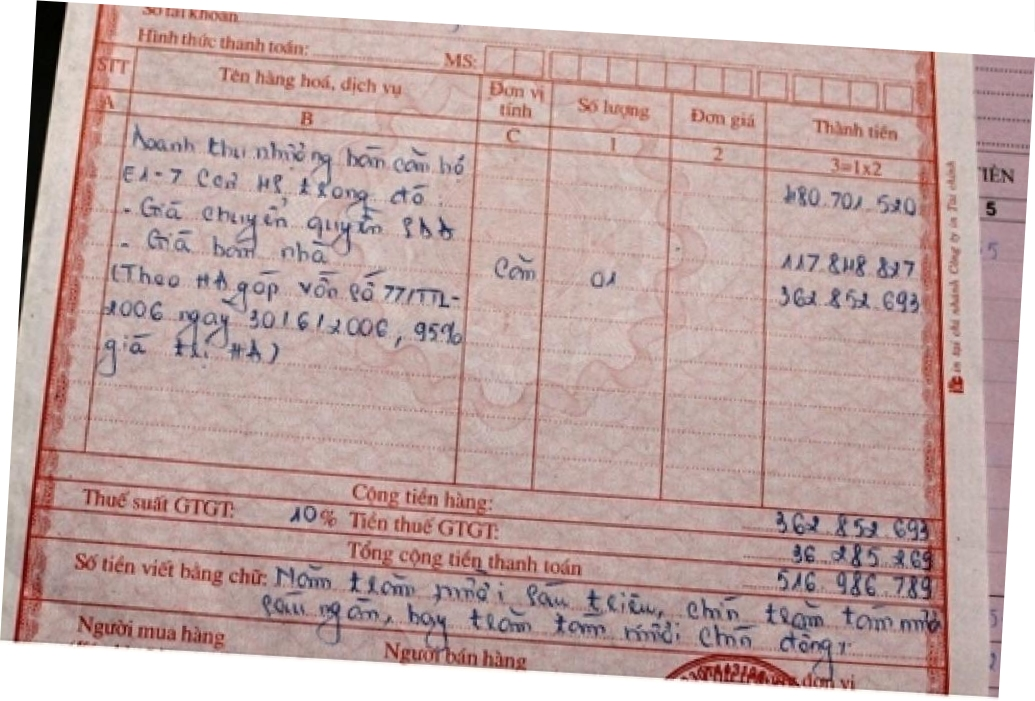 Số tài khoản
Hình thức thanh toán: MS:
STT Tên hàng hoá, dịch vụ Đơn vị tính Số lượng Đơn giá Thành tiền
A B C 1 2 3=1x2
Doanh thu nhượng bán căn hộ
E1-7 480.701.520
trong đó:
- Giá chuyển quyền SDĐ 117.848.827
- Giá bán nhà Căn 01 362.852.693
(Theo HĐ góp vốn số 77/TTL-
2006 ngày 30/6/2006, 95%
giá trị HĐ)
Cộng tiền hàng: 362.852.693
Thuế suất GTGT: 10% Tiền thuế GTGT: 36.285.269
Tổng cộng tiền thanh toán 516.986.789
Số tiền viết bằng chữ: Năm trăm mười sáu triệu, chín trăm tám mươi
sáu ngàn, bảy trăm tám mươi chín đồng
Người mua hàng Người bán hàng đơn vị
in tại chi nhánh Công ty in Tài chính
IỀN
5